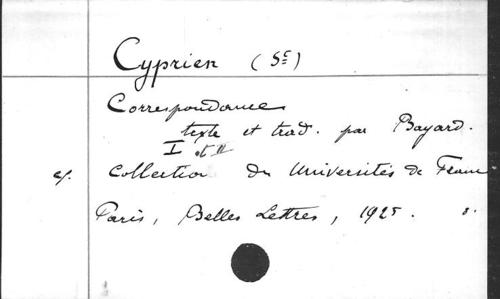 Cyprien (St)
Correspondance
texte et trad. par Bayard.
I et II
cf. Collection des Universités de France
Paris, Belles Lettres, 1925. 8.